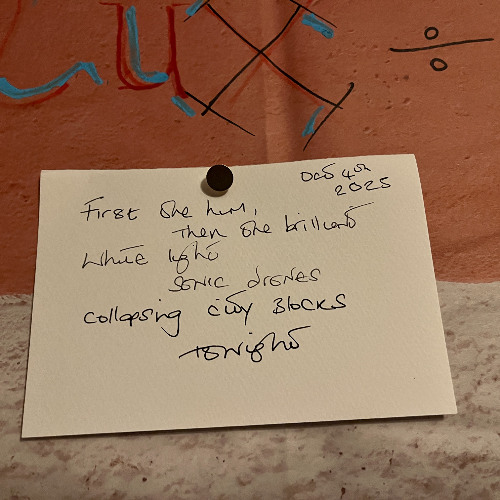 Oct 4th
2025
First the hum,
then the brilliant
white light
sonic drones
collapsing city BLOCKS
tonight